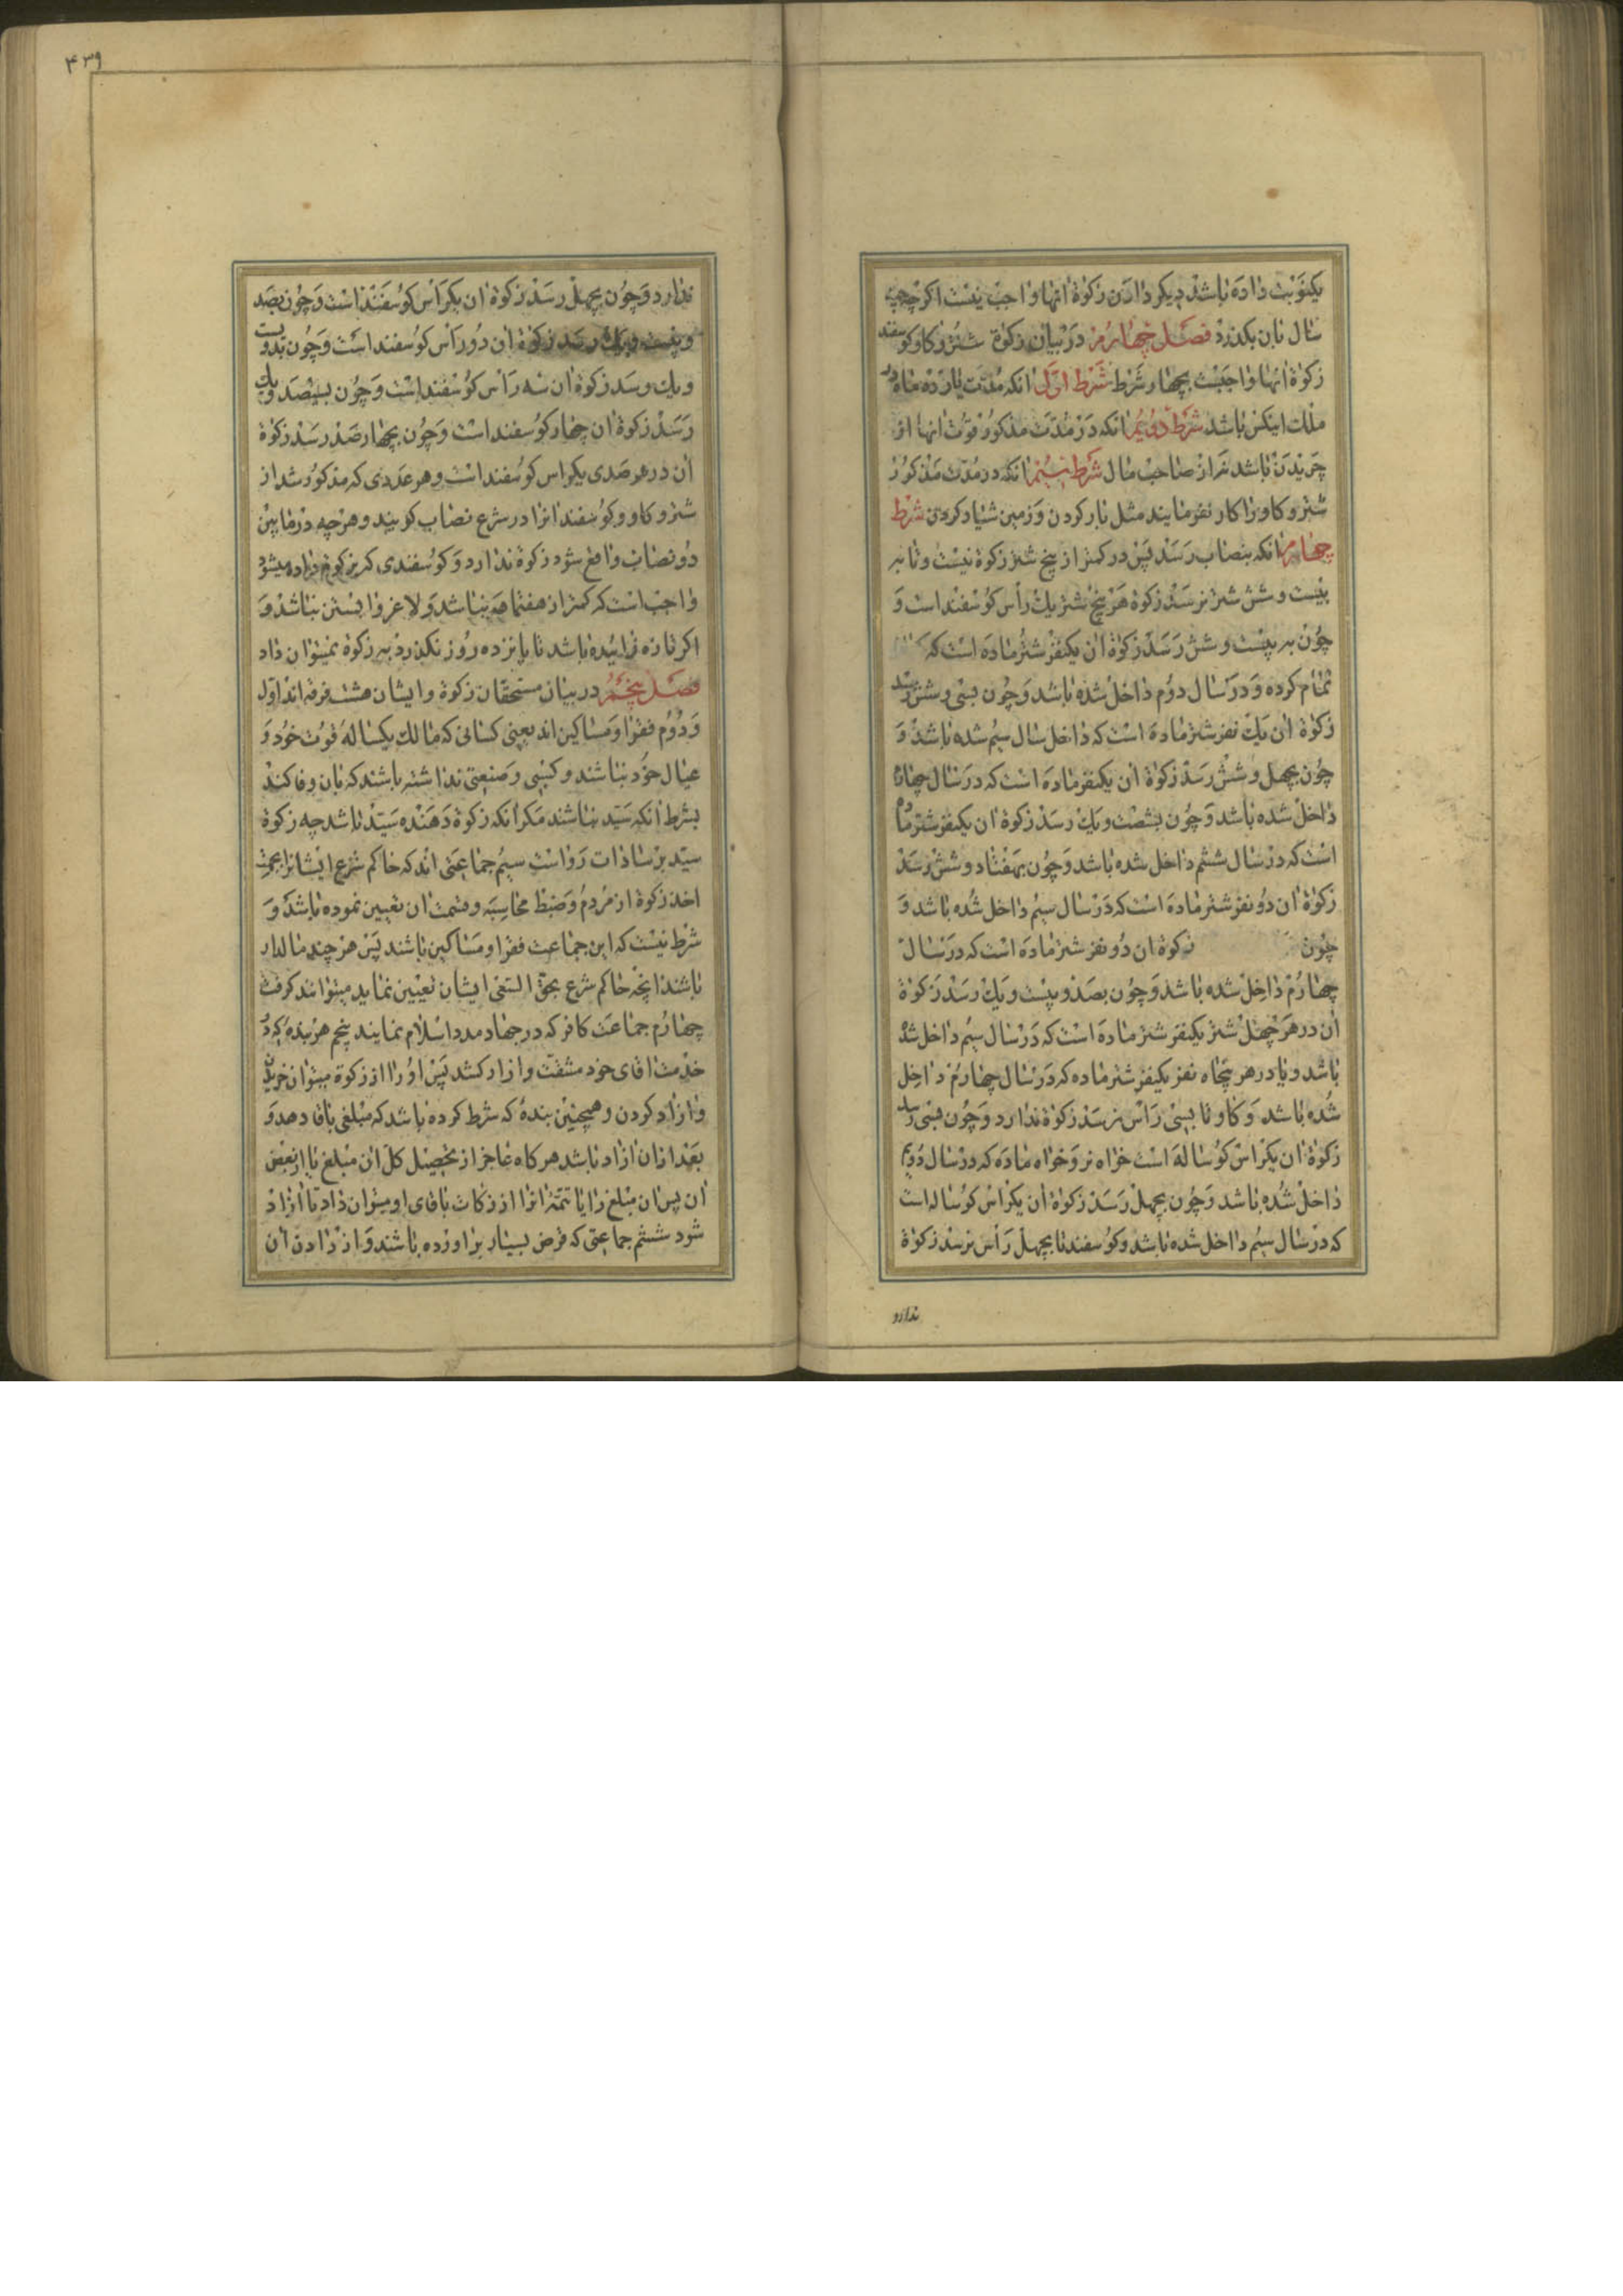 یکنوبت داده باشد دیکر دادن زکوة انها واجب نیست اکرچه
سال بان بکذرد فصل چهارم در بیان زکوة شتر وکاو وکوسفند
زکوة انها واجبست بچهار شرط شرط اول انکه مدت یازده ماه در
ملک اینکس باشد شرط دویم انکه در مدت مذکور قوت انها از
چریدن باشد نه از صاحب مال شرط سیم انکه در مدت مذکور
شتر و کاو را کار نفرمایند مثل بار کردن و زمین شیار کردن شرط
چهارم انکه بنصاب رسد پس در کمتر از پنج شتر زکوة نیست وتا به
بیست وشش شتر نرسد زکوة هر پنج شتر یک رأس کوسفند است و
چون به بیست وشش رسد زکوة ان یکنفر شتر ماده است که
تمام کرده و در سال دوم داخل شده باشد وچون بسی وشش رسد
زکوة ان یک نفر شتر ماده است که داخل سال سیم شده باشد و
چون بچهل وشش رسد زکوة ان یکنفر ماده است که در سال چهارم
داخل شده باشد وچون بشصت ویک رسد زکوة ان یکنفر شتر ماده
است که در سال ششم داخل شده باشد وچون بهفتاد وشش رسد
زکوة ان دو نفر شتر ماده است که در سال سیم داخل شده باشد و
چون زکوة ان دو نفر شتر ماده است که در سال
چهارم داخل شده باشد وچون بصد وبیست ویک رسد زکوة
ان در هر چهل شتر یکنفر شتر ماده است که در سال سیم داخل شده
باشد ویا در هر پنجاه نفر یکنفر شتر ماده که در سال چهارم داخل
شده باشد وکاو تا بسی رأس نرسد زکوة ندارد وچون بسی رسد
زکوة ان یکراس کوساله است خواه نر وخواه ماده که در سال دویم
داخل شده باشد وچون بچهل رسد زکوة ان یکراس کوساله است
که در سال سیم داخل شده باشد وکوسفند تا بچهل رأس نرسد زکوة
ندارد
۴۳۹
ندارد وچون بچهل رسد زکوة ان یکرأس کوسفند است وچون بصد
وبیست ویک رسد زکوة ان دو رأس کوسفند است وچون بدویست
ویک رسد زکوة ان سه رأس کوسفند است وچون بسیصد ویک
رسد زکوة ان چهار کوسفند است وچون بچهار صد رسد زکوة
ان در هر صدی یکراس کوسفند است وهر عددی که مذکور شد از
شتر و کاو وکوسفند انرا در شرع نصاب کویند وهرچه در مابین
دو نصاب واقع شود زکوة ندارد وکوسفندی که بزکوة داده میشود
واجب است که کمتر از هفتماهه نباشد ولاغر وابستن نباشد و
اکر تازه زائیده باشد تا پانزده روز نکذرد به زکوة نمیتوان داد
فصل پنجم در بیان مستحقان زکوة وایشان هشت فرقه اند اول
و دوم فقرا ومساکین اند یعنی کسانی که مالک یکساله قوت خود و
عیال خود نباشند وکسبی وصنعتی نداشته باشند که بان وفا کند
بشرط انکه سید نباشند مکر انکه زکوة دهنده سید باشد چه زکوة
سید بر سادات رواست سیم جماعتی اند که حاکم شرع ایشانرا بجهت
اخذ زکوة از مردم وضبط محاسبه وقسمت ان تعیین نموده باشد و
شرط نیست که این جماعت فقرا ومساکین باشند پس هر چند مالدار
باشند انچه حاکم شرع بحق السعی ایشان تعیین نماید میتوانند کرفت
چهارم جماعت کافر که در جهاد مدد اسلام نمایند پنجم هر بنده که در
خدمت اقای خود مشقت وازار کشد پس او را از زکوة میتوان خریدن
وازاد کردن وهمچنین بنده که شرط کرده باشد که مبلغی باقا دهد و
بعد ازان ازاد باشد هر کاه عاجز از تحصیل کل ان مبلغ یا از بعض
ان پس ان مبلغ را یا تتمه انرا از زکات باقای او میتوان داد تا ازاد
شود ششم جماعتی که قرض بسیار براورده باشند واز دادن ان